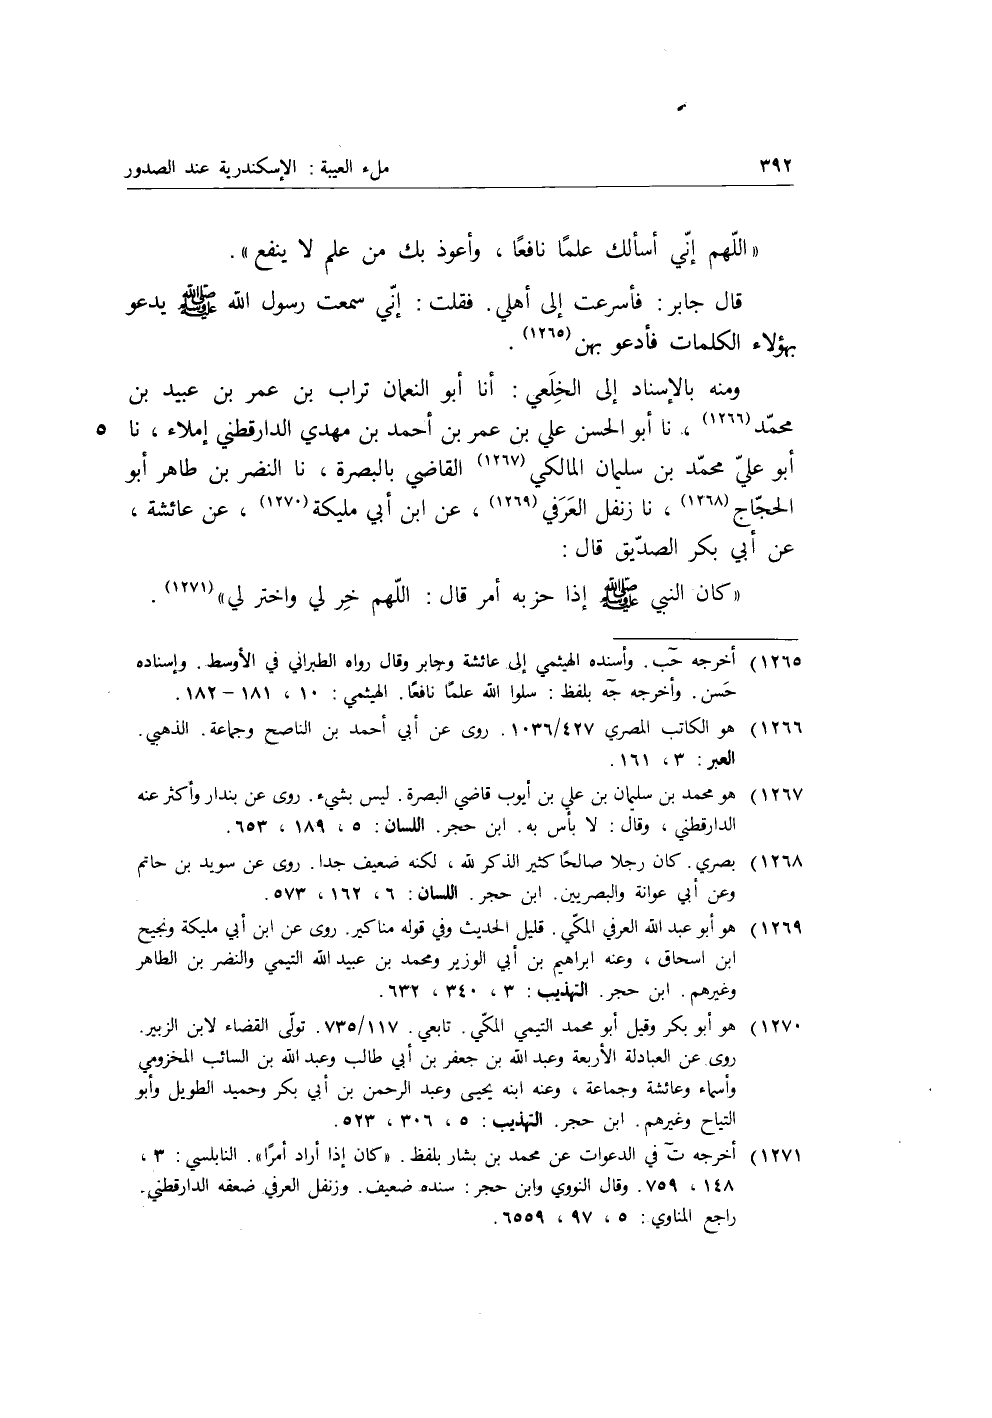 ٣٩٢ ملء العيبة : الإسكندرية عند الصدور
«اللّهم إنّي أسألك علمًا نافعًا ، وأعوذ بك من علم لا ينفع» .
قال جابر : فأسرعت إلى أهلي . فقلت : إنّي سمعت رسول الله ﷺ يدعو
بهؤلاء الكلمات فأدعو بهن (١٢٦٥) .
ومنه بالإسناد إلى الخِلَعي : أنا أبو النعمان تراب بن عمر بن عبيد بن
محمّد (١٢٦٦) ، نا أبو الحسن علي بن عمر بن أحمد بن مهدي الدارقطني إملاء ، نا ٥
أبو عليّ محمّد بن سليمان المالكي (١٢٦٧) القاضي بالبصرة ، نا النضر بن طاهر أبو
الحجّاج (١٢٦٨) ، نا زنفل العَرَفي (١٢٦٩) ، عن ابن أبي مليكة (١٢٧٠) ، عن عائشة ،
عن أبي بكر الصدّيق قال :
«كان النبي ﷺ إذا حزبه أمر قال : اللّهم خِر لي واختر لي» (١٢٧١) .
١٢٦٥) أخرجه حَب . وأسنده الهيثمي إلى عائشة وجابر وقال رواه الطبراني في الأوسط . وإسناده
حَسن . وأخرجه جَه بلفظ : سلوا الله علمًا نافعًا . الهيثمي : ١٠ ، ١٨١ – ١٨٢ .
١٢٦٦) هو الكاتب المصري ١٠٣٦/٤٢٧ . روى عن أبي أحمد بن الناصح وجماعة . الذهبي .
العبر : ٣ ، ١٦١ .
١٢٦٧) هو محمد بن سليمان بن علي بن أيوب قاضي البصرة . ليس بشيء . روى عن بندار وأكثر عنه
الدارقطني ، وقال : لا بأس به . ابن حجر . اللسان : ٥ ، ١٨٩ ، ٦٥٣ .
١٢٦٨) بصري . كان رجلا صالحًا كثير الذكر لله ، لكنه ضعيف جدا . روى عن سويد بن حاتم
وعن أبي عوانة والبصريين . ابن حجر . اللسان : ٦ ، ١٦٢ ، ٥٧٣ .
١٢٦٩) هو أبو عبد الله العرفي المكّي . قليل الحديث وفي قوله مناكير . روى عن ابن أبي مليكة ونجيح
ابن اسحاق ، وعنه ابراهيم بن أبي الوزير ومحمد بن عبيد الله التيمي والنضر بن الطاهر
وغيرهم . ابن حجر . التهذيب : ٣ ، ٣٤٠ ، ٦٣٢ .
١٢٧٠) هو أبو بكر وقيل أبو محمد التيمي المكّي . تابعي . ٧٣٥/١١٧ . تولّى القضاء لابن الزبير .
روى عن العبادلة الأربعة وعبد الله بن جعفر بن أبي طالب وعبد الله بن السائب المخزومي
وأسماء وعائشة وجماعة ، وعنه ابنه يحيى وعبد الرحمن بن أبي بكر وحميد الطويل وأبو
التياح وغيرهم . ابن حجر . التهذيب : ٥ ، ٣٠٦ ، ٥٢٣ .
١٢٧١) أخرجه تَ في الدعوات عن محمد بن بشار بلفظ . «كان إذا أراد أمرًا» . النابلسي : ٣ ،
١٤٨ ، ٧٥٩ . وقال النووي وابن حجر : سنده ضعيف . وزنفل العرفي ضعفه الدارقطني .
راجع المناوي : ٥ ، ٩٧ ، ٦٥٥٩ .